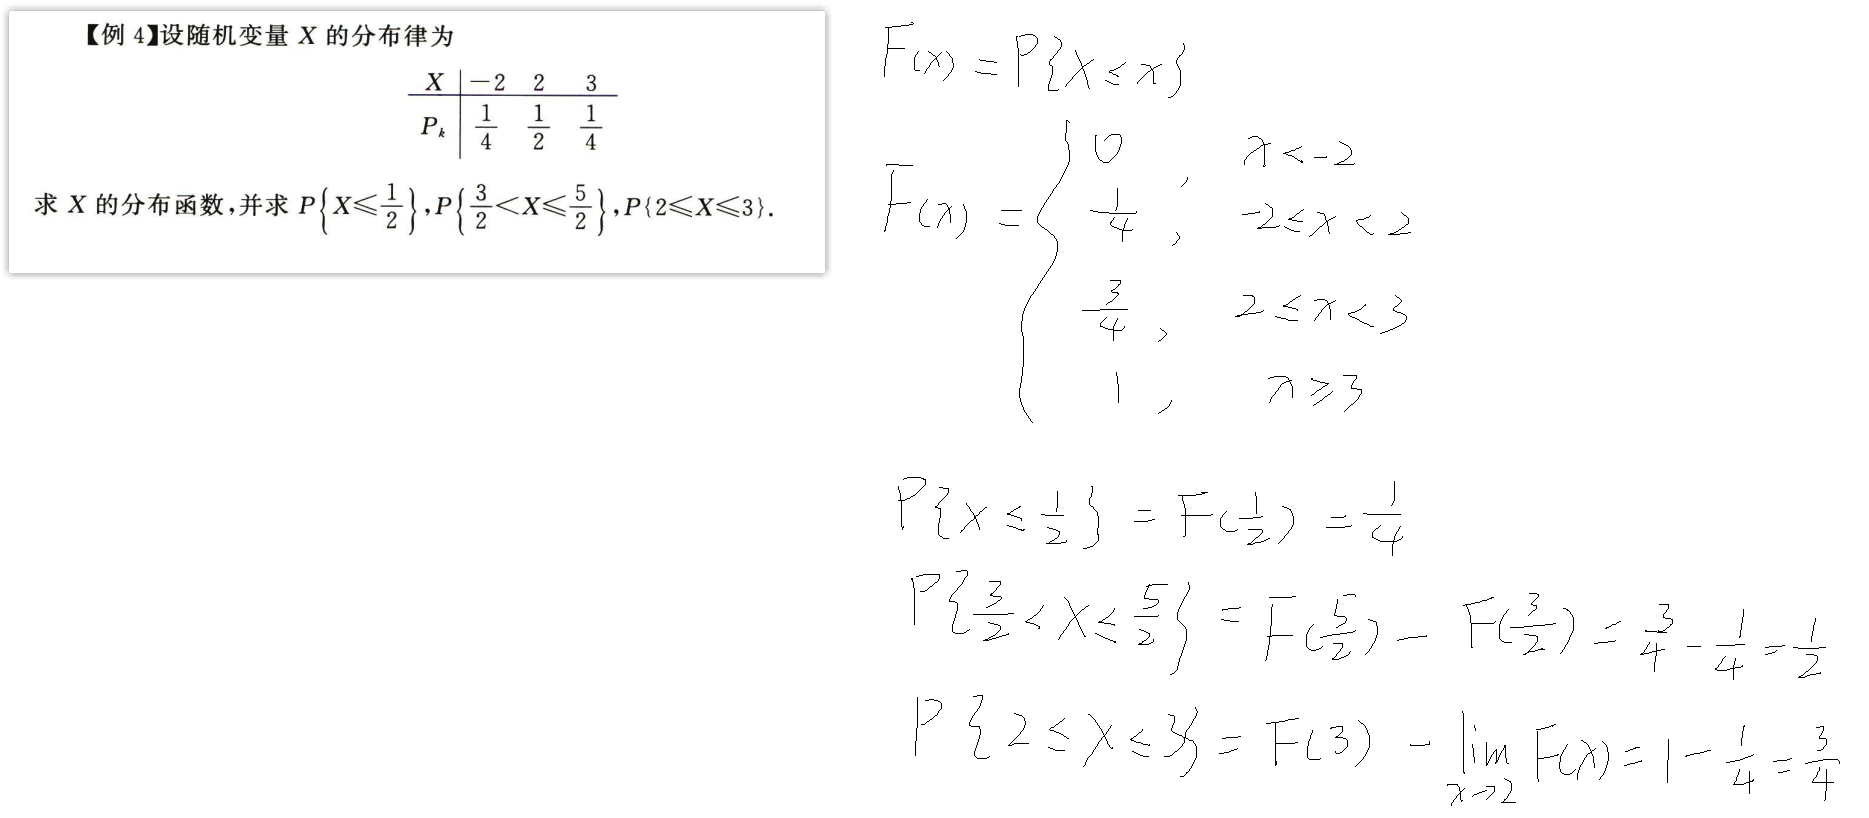 【例 4】设随机变量 X 的分布律为
X −2 2 3
P_k 1/4 1/2 1/4
求 X 的分布函数,并求 P{X≤1/2},P{3/2<X≤5/2},P{2≤X≤3}.
F(x) = P{X≤x}
F(x) = { 0 , x<-2
1/4 , -2≤x<2
3/4 , 2≤x<3
1 , x≥3
P{X≤1/2} = F(1/2) = 1/4
P{3/2<X≤5/2} = F(5/2) - F(3/2) = 3/4 - 1/4 = 1/2
P{2≤X≤3} = F(3) - lim x→2 F(x) = 1 - 1/4 = 3/4